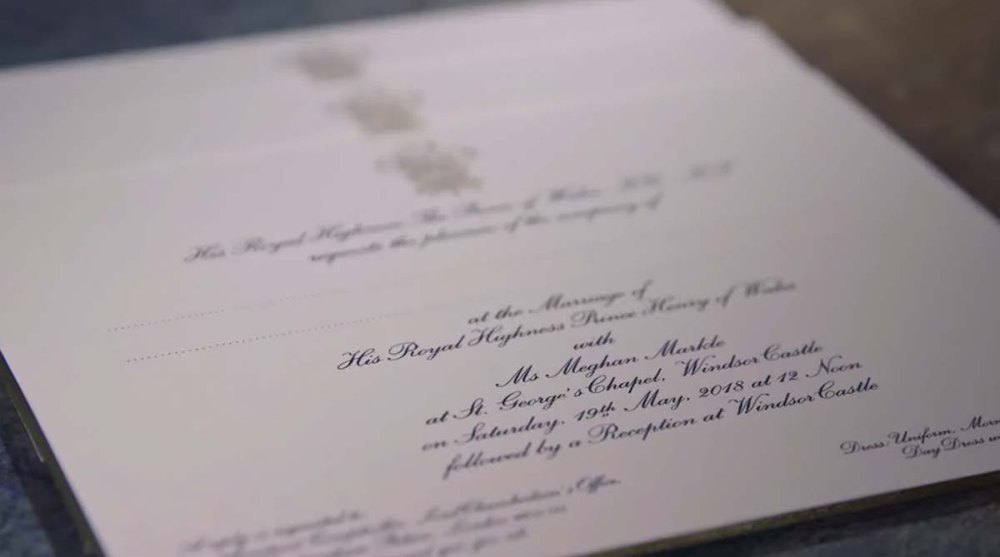 His Royal Highness The Prince of Wales
requests the pleasure of the company of
at the Marriage of
His Royal Highness Prince Henry of Wales
with
Ms Meghan Markle
at St. George's Chapel, Windsor Castle
on Saturday, 19th May, 2018 at 12 Noon
followed by a Reception at Windsor Castle
Dress: Uniform, Morn
Day Dress w
A reply is requested to
Lord Chamberlain's Office,
London